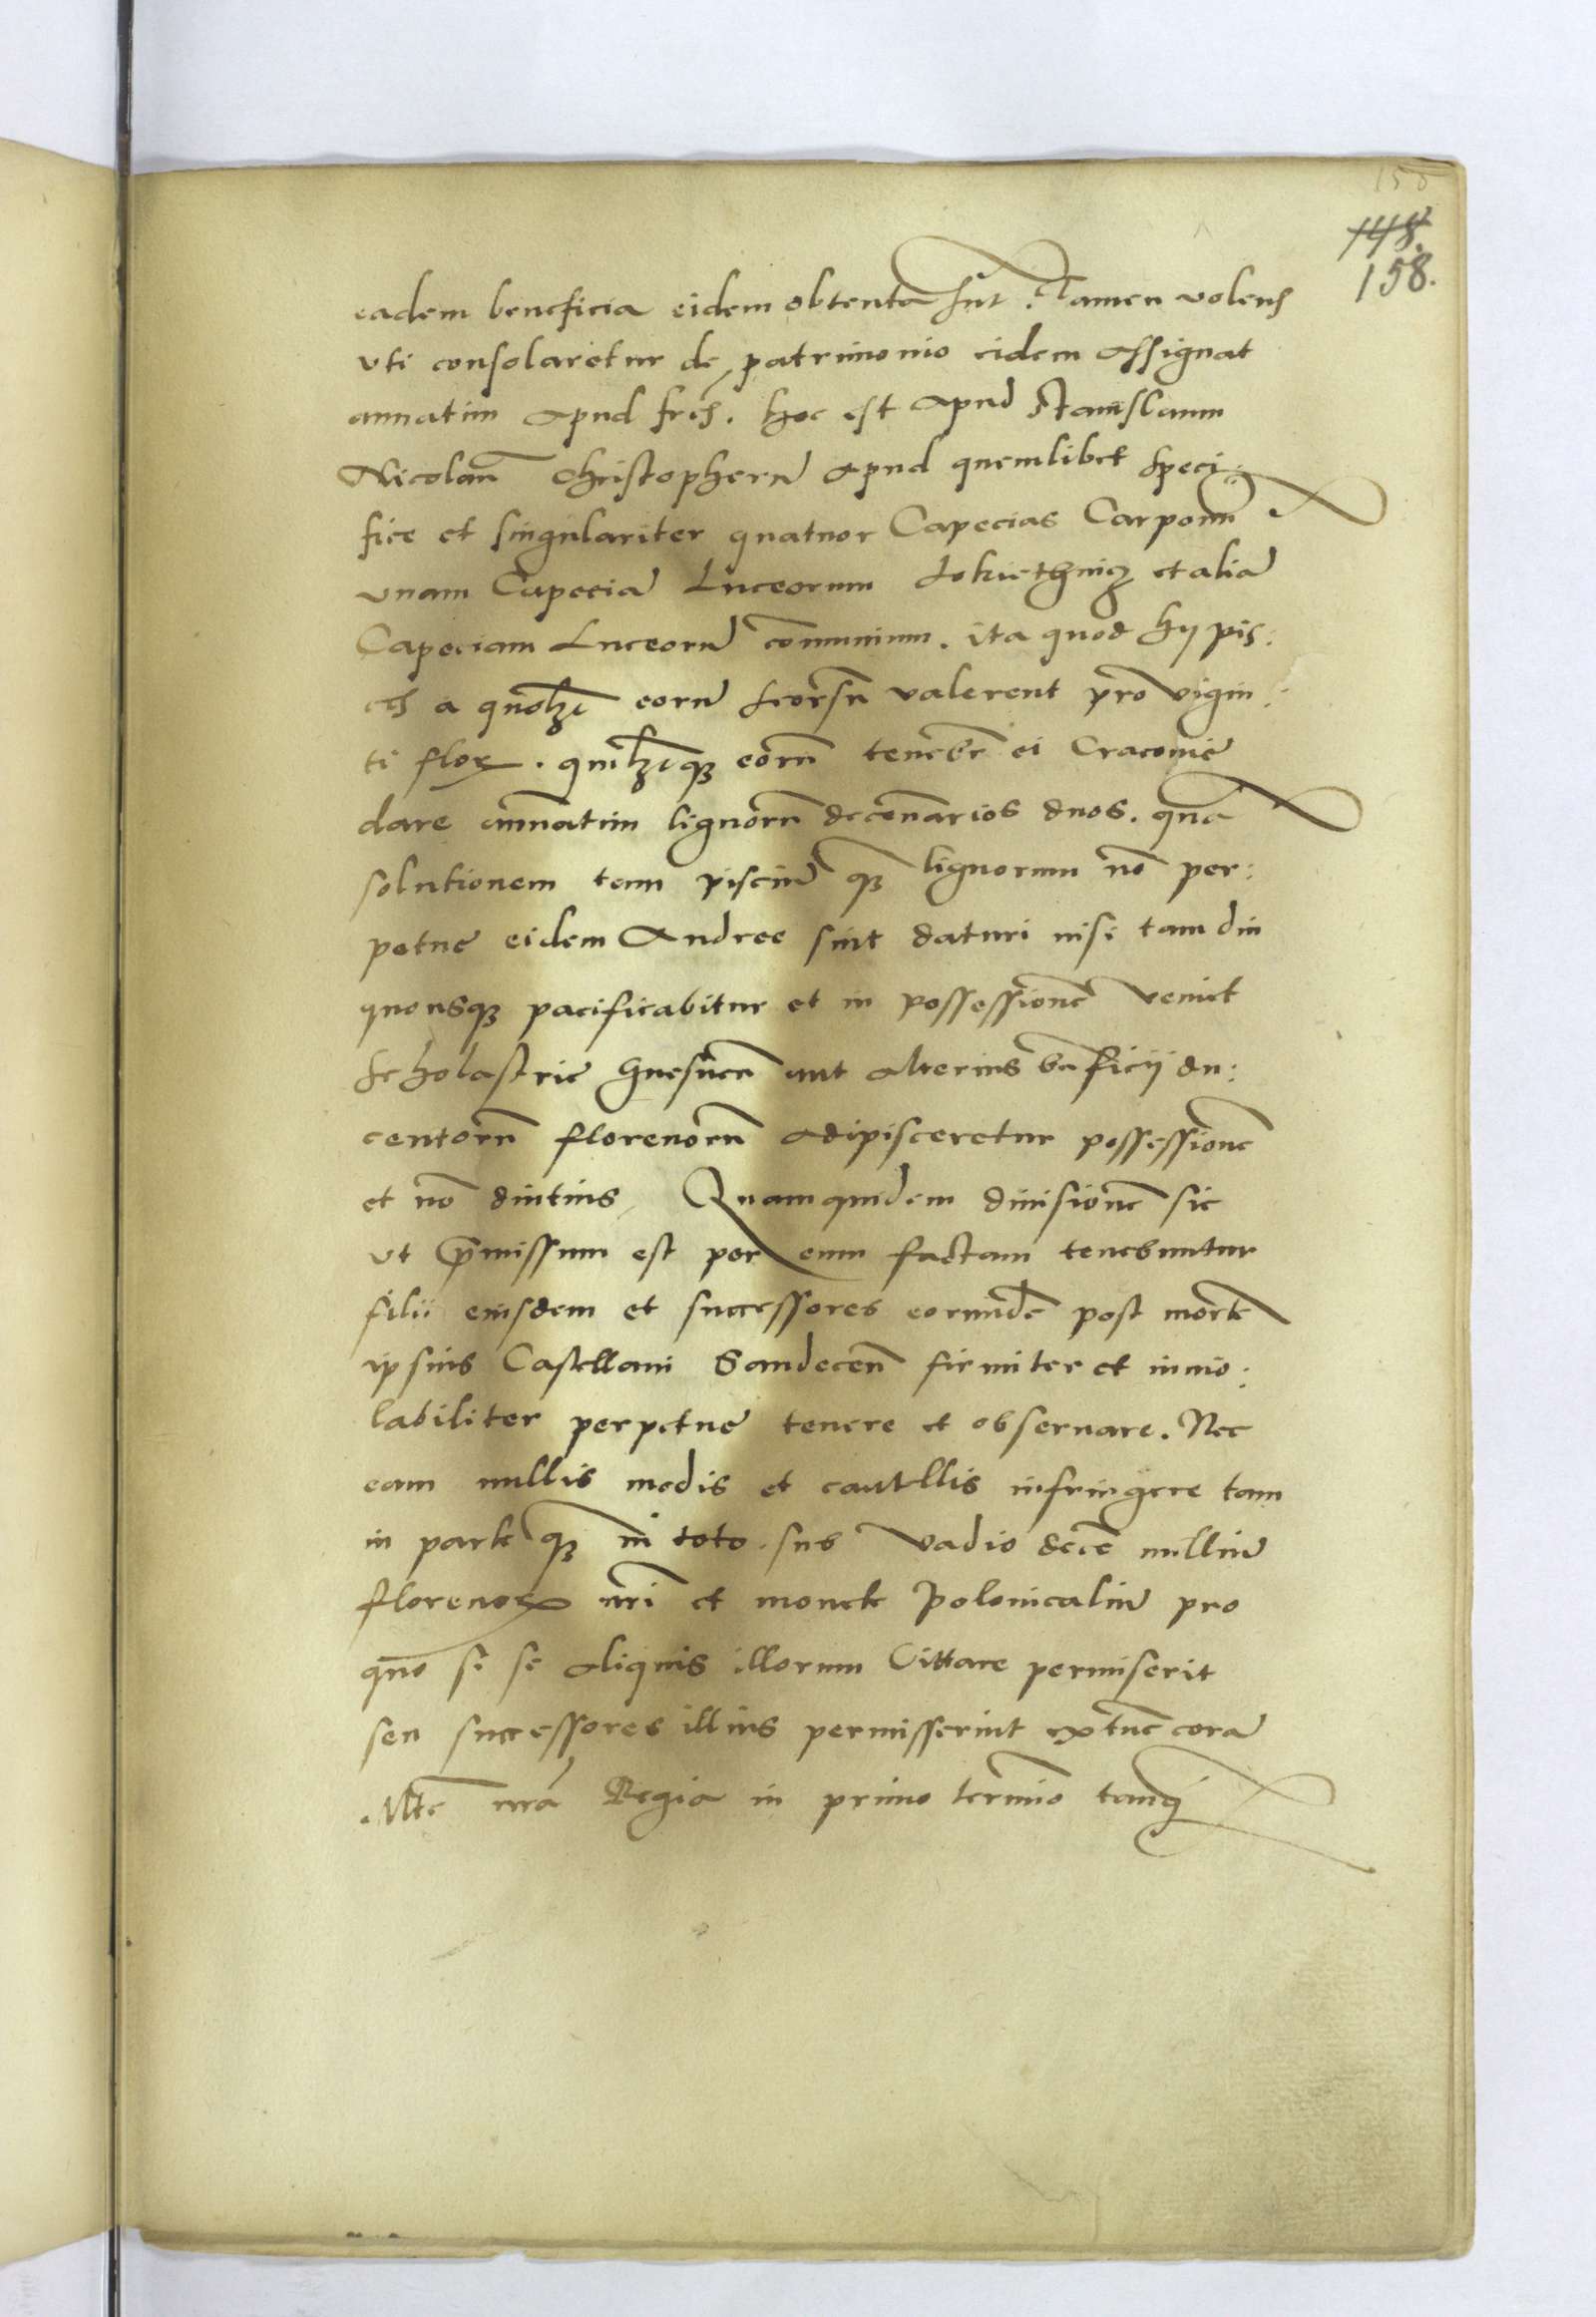 158
148.
158.
eadem beneficia eidem obtenta sunt. Tamen volens
vti consolaretur de patrimonio eidem assignat
annatim apud fres. hoc est apud Stanislaum
Nicolaum Christopherum apud quemlibet speci:
fice et singulariter quatuor Capecias Carponum
vnam Capeciam Luceorum et aliam
Capeciam Luceorum communium. ita quod hij pis:
ces a quolibet eorum seorsum valerent pro vigin:
ti flor. quilibetque eorum tenebitur ei Cracovie
dare annatim lignorum decennarios duos. quam
solutionem tam piscium quam lignorum non per:
petue eidem Andree sint daturi nisi tamdiu
quousque pacificabitur et in possessionem veniet
scholastrie Gnesnen aut alterius beneficij du:
centorum florenorum adipisceretur possessionem
et non diutius, Quamquidem diuisionem sic
vt premissum est per eum factam tenebuntur
filii eiusdem et successores eorundem post mortem
ipsius Castellani Sandecen firmiter et inuio:
labiliter perpetue tenere et obseruare. Nec
eam nullis modis et cautellis infringere tam
in parte quam in toto. sub vadio decem millium
florenorum nri et monete Polonicalium pro
quo si se aliquis illorum Cittare permiserit
seu successores illius permisserint extunc coram
Mte nra Regia in primo termino tanq